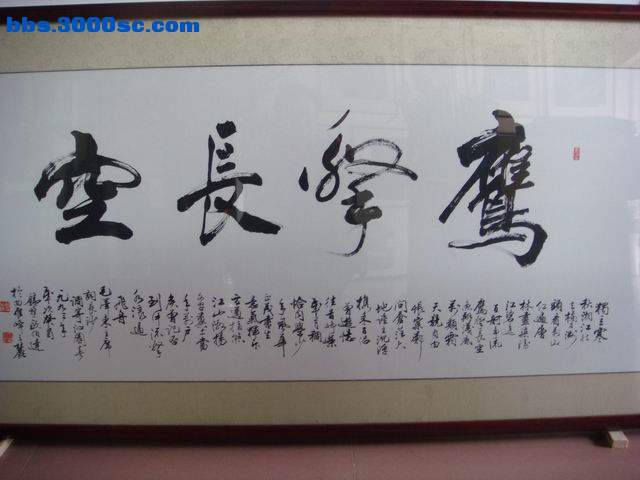 bbs.3000sc.com
鷹擊長空
獨立寒
秋湘江北
去橘子洲
頭看萬山
紅遍層
林盡染漫
江碧透
百舸爭流
鷹擊長空
魚翔淺底
萬類霜
天競自由
悵寥廓
問蒼茫大
地誰主沉浮
攜來百侶
曾遊憶
往昔崢嶸
歲月稠
恰同學少
年風華
正茂書生
意氣揮斥
方遒指點
江山激揚
文字糞土當
年萬戶
侯曾記否
到中流擊
水浪遏
飛舟
毛澤東主席